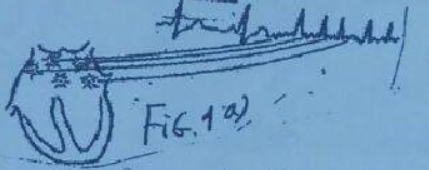 FIG. 1 a)